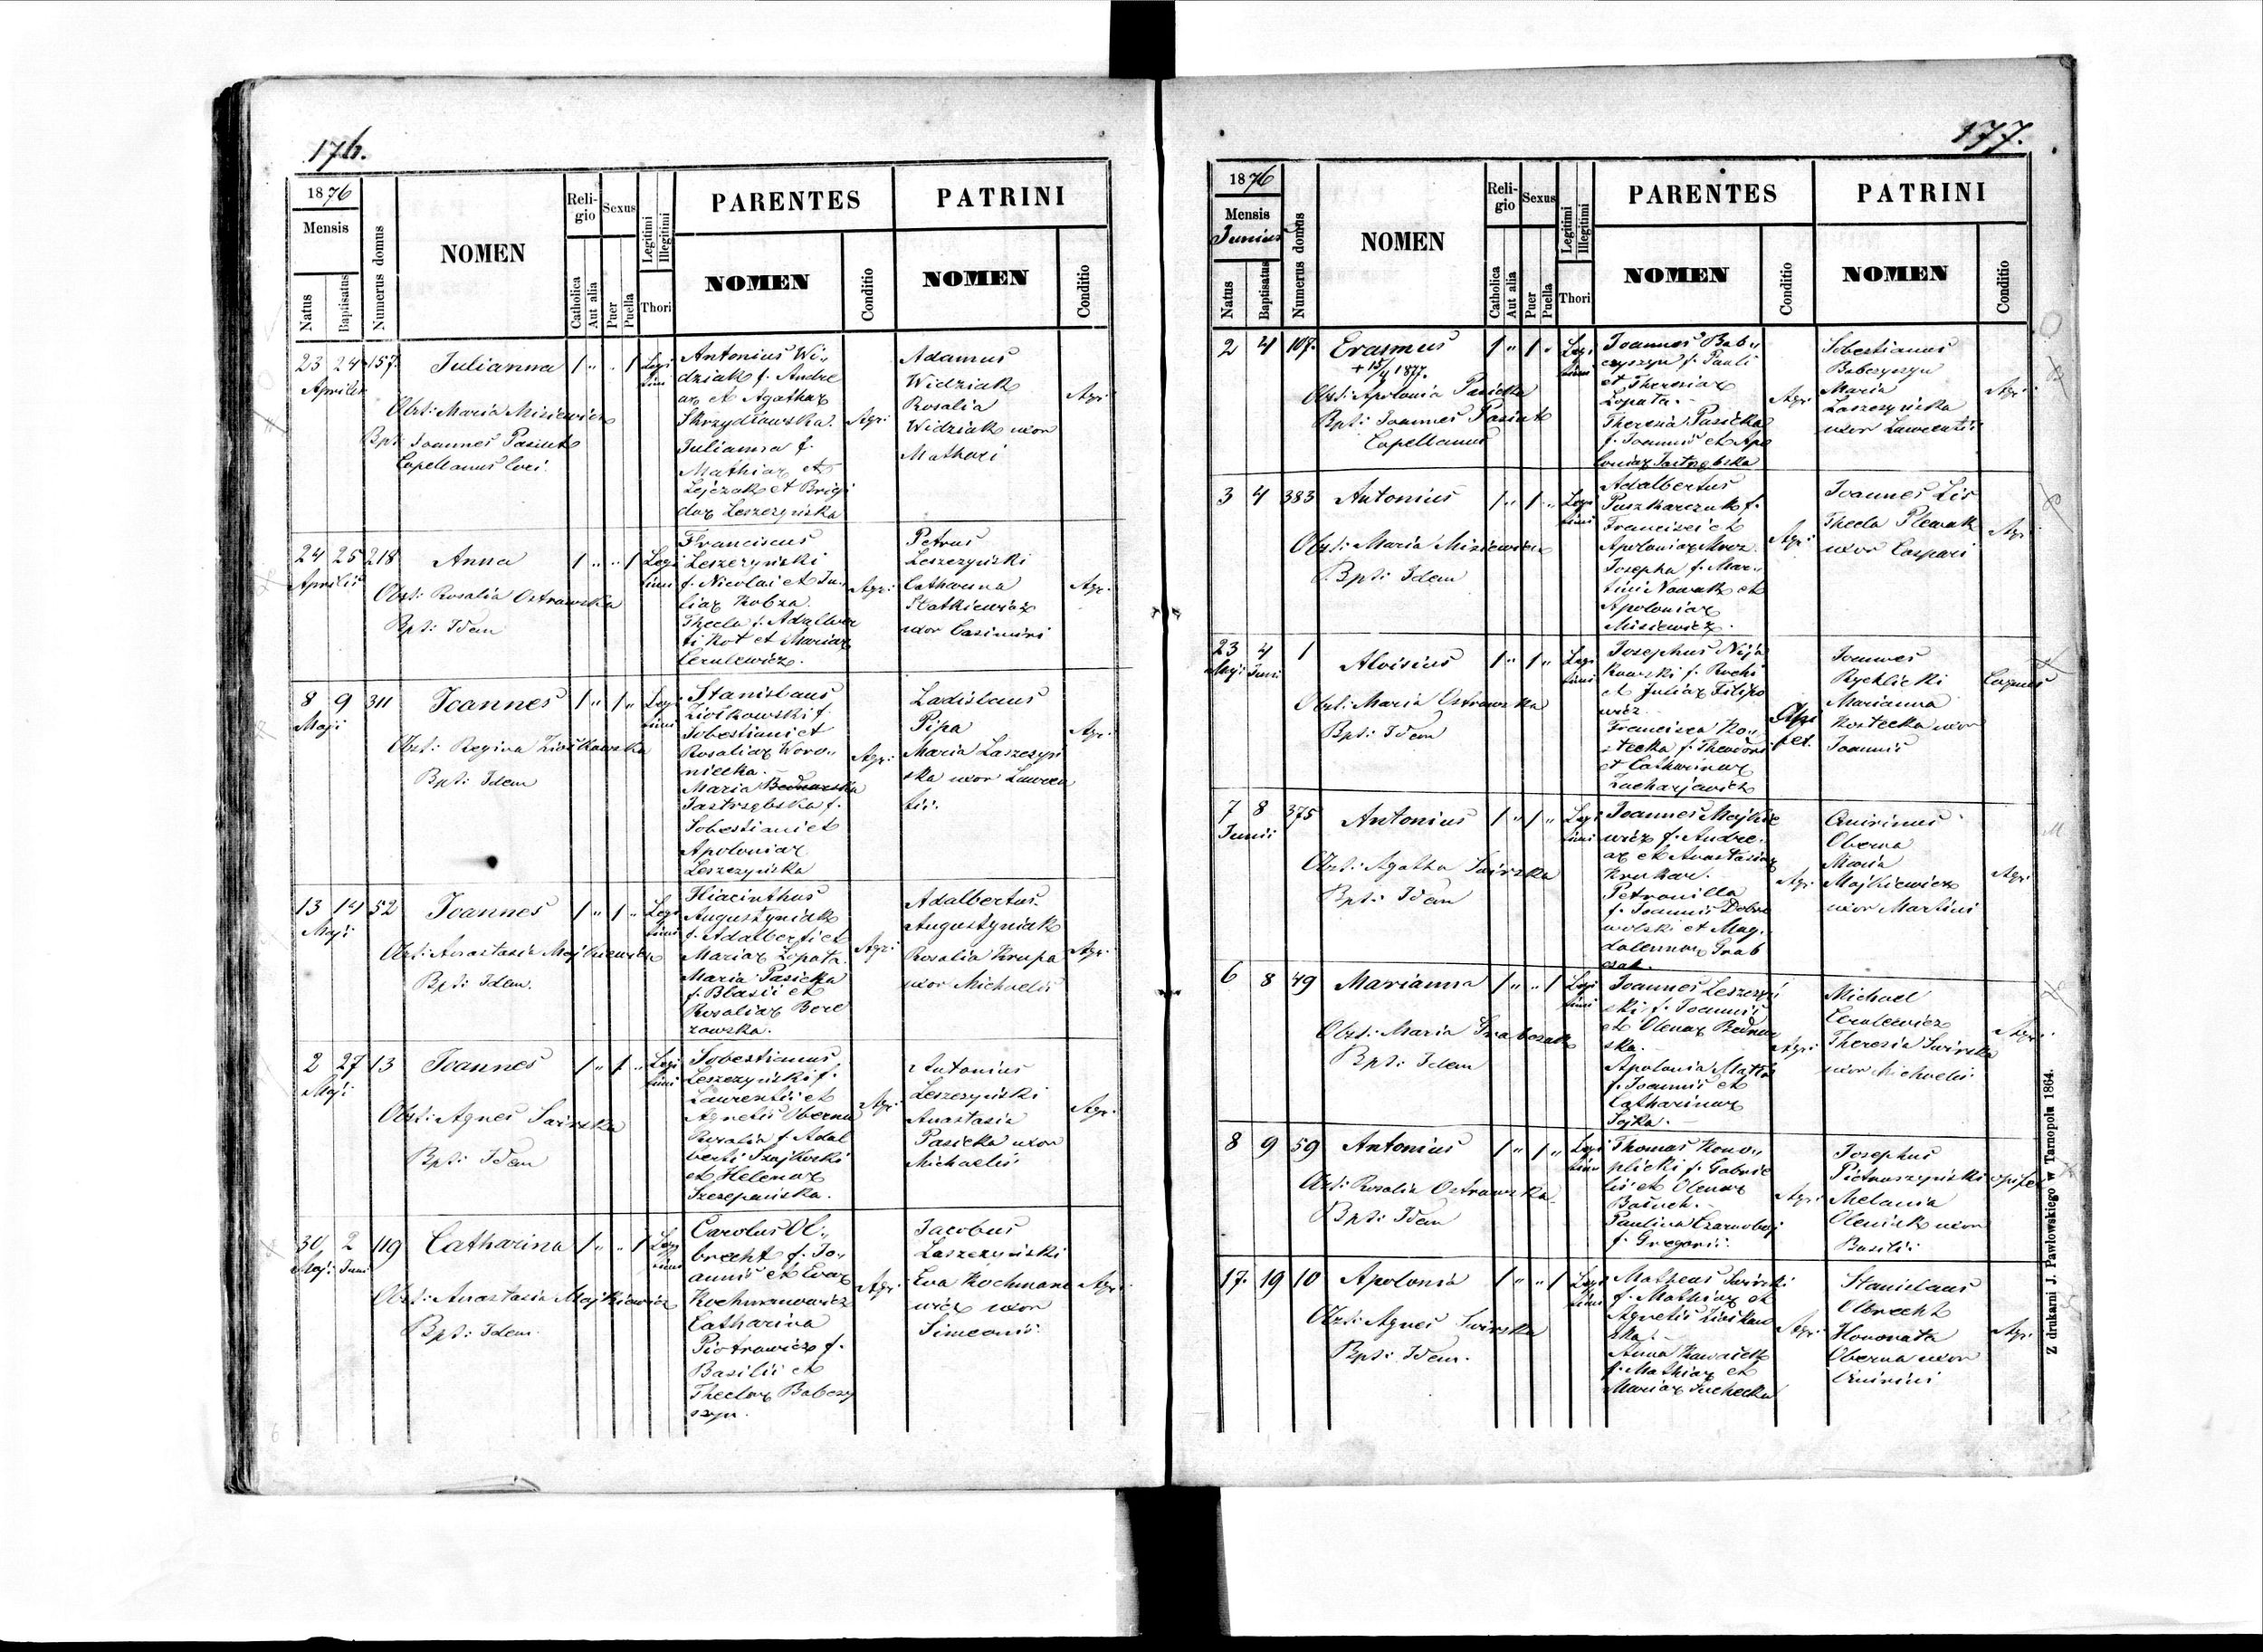 176.
1876
Mensis
Natus
Baptisatus
Numerus domus
NOMEN
Religio
Catholica
Aut alia
Sexus
Puer
Puella
Legitimi
Illegitimi
Thori
PARENTES
NOMEN
Conditio
PATRINI
NOMEN
Conditio
23 24 157.
Aprilis
Julianna
1 " " 1
Legi
timi
Obst: Maria Misiewicz
Bpt: Joannes Pasiut
Capellanus loci
Antonius Wi„
dziak f. Andre
ae et Agathae
Skrzydłowska.
Julianna f.
Mathiae et
Lejczak et Brigi
dae Leszczyńska
Agr:
Adamus
Widziak
Rosalia
Widziak uxor
Mathaei
Agr:
24 25 218
Aprilis
Anna
1 " " 1
Legi
timi
Obst: Rosalia Ostrowska
Bpt: Idem
Franciscus
Leszczyński
f. Nicolai et Ju„
liae Kobza.
Thecla f. Adalber
ti Kot et Mariae
Cerulewicz.
Agr:
Petrus
Leszczyński
Catharina
Statkiewicz
uxor Casimiri
Agr:
8 9 311
Maji
Joannes
1 " 1 "
Legi
timi
Obst: Regina Ziółkowska
Bpt: Idem
Stanislaus
Ziółkowski f.
Sobestiani et
Rosaliae Woro„
niecka.
Maria Bednarska
Jastrzębska f.
Sobestiani et
Apoloniae
Leszczyńska
Agr:
Ladislaus
Pipa
Maria Laszczyń
ska uxor Lauren
tii.
Agr:
13 14 52
Maji
Joannes
1 " 1 "
Legi
timi
Obst: Anastasia Majkiewicz
Bpt: Idem.
Hiacinthus
Augustyniak
f. Adalberti et
Mariae Łopata.
Maria Pasieka
f. Blasii et
Rosaliae Bere
zowska.
Agr:
Adalbertus
Augustyniak
Rosalia Krupa
uxor Michaelis
Agr:
2 27 13
Maji
Joannes
1 " 1 "
Legi
timi
Obst: Agnes Swirska
Bpt: Idem
Sobestianus
Leszczyński f.
Laurentii et
Agnetis Oberna
Rosalia f. Adal
berti Szajkoski
et Helenae
Szczepańska.
Agr:
Antonius
Leszczyński
Anastasia
Pasieka uxor
Michaelis
Agr:
30 2 119
Maji Juni
Catharina
1 " " 1
Legi
timi
Obst: Anastasia Majkiewicz
Bpt: Idem.
Carolus Ol„
brecht f. Jo„
annis et Evae
Kochmanowicz
Catharina
Piotrowicz f.
Basilii et
Theclae Babczy
szyn.
Agr:
Jacobus
Laszczyński
Eva Kochmano
wicz uxor
Simeonis
Agr:
177.
1876
Mensis
Junius
Natus
Baptisatus
Numerus domus
NOMEN
Religio
Catholica
Aut alia
Sexus
Puer
Puella
Legitimi
Illegitimi
Thori
PARENTES
NOMEN
Conditio
PATRINI
NOMEN
Conditio
2 4 107.
Erasmus
+ 15/4 1877.
1 " 1 "
Legi
timi
Obst: Apolonia Pasieka
Bpt: Joannes Pasiut
Capellanus
Joannes Bab„
czyszyn f. Pauli
et Theresiae
Łopata.
Theresia Pasieka
f. Joannis et Apo
loniae Jastrzębska
Agr:
Sobestianus
Babczyszyn
Maria
Laszczyńska
uxor Laurentii
Agr:
3 4 383
Antonius
1 " 1 "
Legi
timi
Obst: Maria Misiewicz
Bpt: Idem
Adalbertus
Puszkarczuk f.
Francisci et
Apoloniae Mroz.
Josepha f. Mar„
tini Nowak et
Apoloniae
Misiewicz.
Agr:
Joannes Lis
Thecla Plewak
uxor Caspari
Agr:
23 4 1
Maji Juni
Aloisius
1 " 1 "
Legi
timi
Obst: Maria Ostrowska
Bpt: Idem
Josephus Nija
kowski f. Rochi
et Juliae Filipo
wicz.
Francisca Ko„
stecka f. Theodori
et Catharinae
Zacharjewicz
Joannes
Rychlicki
Marianna
Kostecka uxor
Joannis
7 8 375
Junii
Antonius
1 " 1 "
Legi
timi
Obst: Agatha Swirska
Bpt: Idem
Joannes Majkie
wicz f. Andre„
ae et Anastasiae
Krukar.
Petronilla
f. Joannis Dobro
wolski et Mag„
dalennae Grab
czak.
Agr:
Quirinus
Oberna
Maria
Majkiewicz
uxor Martini
Agr:
6 8 49
Marianna
1 " " 1
Legi
timi
Obst: Maria Grabczak
Bpt: Idem
Joannes Leszczyń
ski f. Joannis
et Olenae Bednar
ska.
Apolonia
f. Joannis et
Catharinae
Sojka.
Agr:
Michael
Cerulewicz
Theresia Swirska
uxor Michaelis
Agr:
8 9 59
Antonius
1 " 1 "
Legi
timi
Obst: Rosalia Ostrowska
Bpt: Idem
Thomas Kono„
plicki f. Gabrie
lis et Olenae
Paulina Czarnobaj
f. Gregorii.
Agr:
Josephus
Pietruszyński
Melania
Oleniuk uxor
Basilii
opifex
17. 19 10
Apolonia
1 " " 1
Legi
timi
Obst: Agnes Swirska
Bpt: Idem.
Matheus Swirski
f. Mathiae et
Agnetis Ziółkow
ska.
Anna
f. Mathiae et
Mariae Suchecka
Agr:
Stanislaus
Olbrecht
Honorata
Oberna uxor
Quirini
Agr:
Z drukarni J. Pawłowskiego w Tarnopolu 1864.